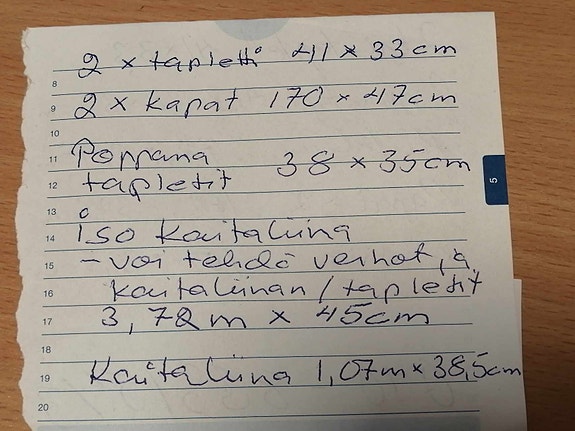 2 x tapletti 41 x 33 cm
8
9
2 x kapat 170 x 47cm
10
11
Poppana
tapletit 38 x 35cm
12
13
14
iso kaitaliina
15
- voi tehdä verhot,
16
kaitaliinan / tapletit
17
3,72 m x 45cm
18
19
Kaitaliina 1,07m x 38,5cm
20
5